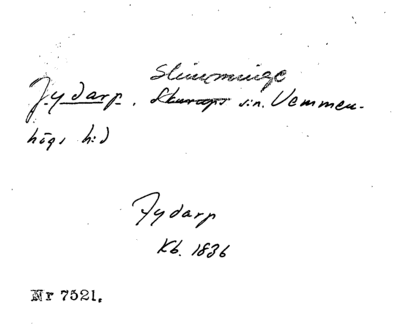 Slimminge
Jydarp. Skurups sn. Vemmen-
högs hd
Jydarp
Kb. 1836
Nr 7521.